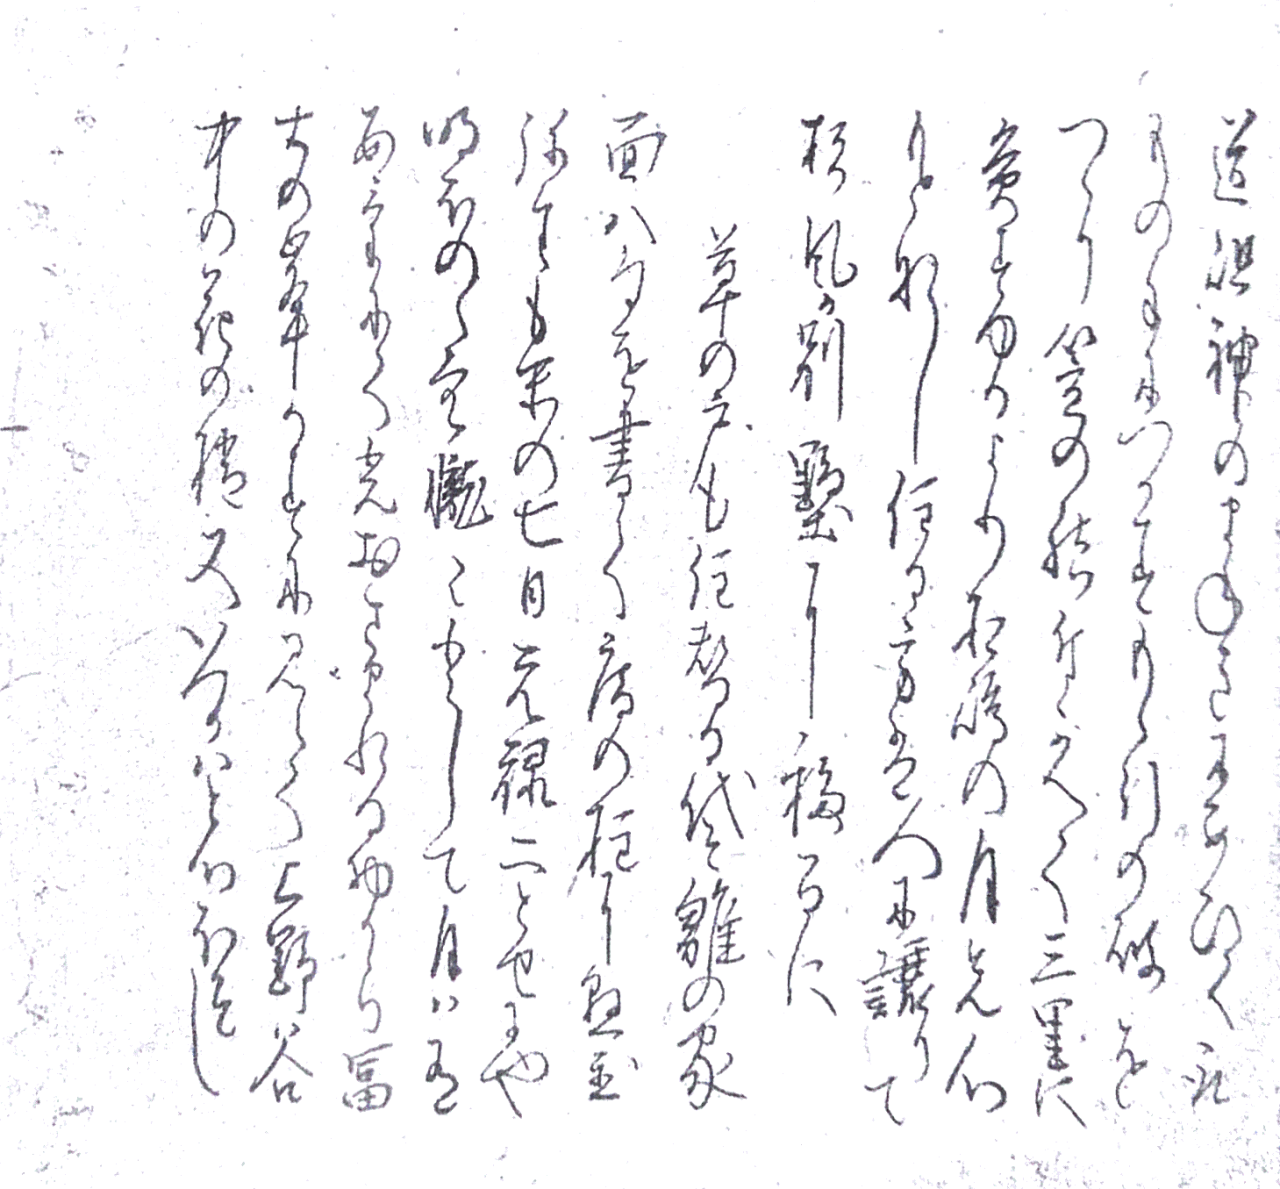 道祖神のまねきにあひて取
もの手につかすもゝ引の破を
つゝり笠の緒付かえて三里に
灸すゆるより松嶋の月先心
もとなし住る方は人に譲りて
杉風か別墅に移るに
草の戸も住替る代そ雛の家
面八句を書て庵の柱に懸置
弥生も末の七日元禄二とせにや
明ほのゝ空朧々として月は有
あけにて光おさまれる物から冨
士の峯かすかに見えて上野谷
中の花の梢又いつかはと心ほそし